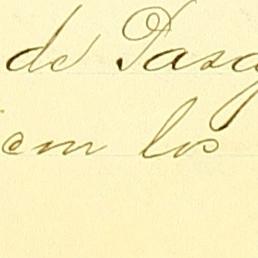 de Pasq
em los